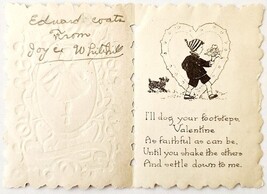 Eduard Coats
From
Joyce Whitehill
I'll dog your footsteps,
Valentine
As faithful as can be,
Until you shake the others
And settle down to me.